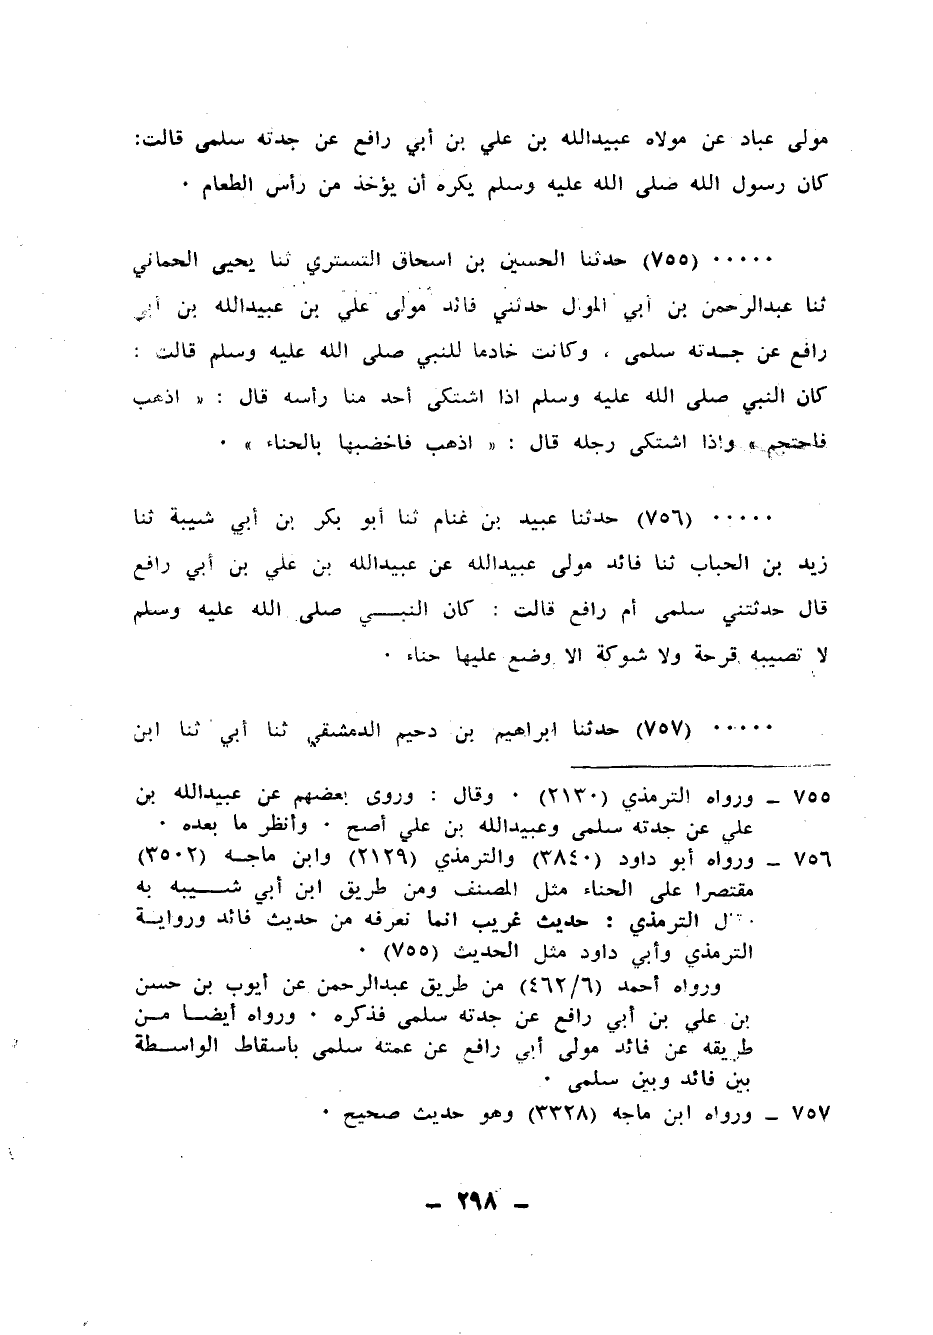 مولى عباد عن مولاه عبيدالله بن علي بن أبي رافع عن جدته سلمى قالت:
كان رسول الله صلى الله عليه وسلم يكره أن يؤخذ من رأس الطعام ٠
٠٠٠٠٠ (٧٥٥) حدثنا الحسين بن اسحاق التستري ثنا يحيى الحماني
ثنا عبدالرحمن بن أبي الموال حدثني فائد مولى علي بن عبيدالله بن أبي
رافع عن جـدته سلمى ، وكانت خادما للنبي صلى الله عليه وسلم قالت :
كان النبي صلى الله عليه وسلم اذا اشتكى أحد منا رأسه قال : « اذهب
فاحتجم » واذا اشتكى رجله قال : « اذهب فاخضبها بالحناء » ٠
٠٠٠٠٠ (٧٥٦) حدثنا عبيد بن غنام ثنا أبو بكر بن أبي شيبة ثنا
زيد بن الحباب ثنا فائد مولى عبيدالله عن عبيدالله بن علي بن أبي رافع
قال حدثتني سلمى أم رافع قالت : كان النبـــي صلى الله عليه وسلم
لا تصيبه قرحة ولا شوكة الا وضع عليها حناء ٠
٠٠٠٠٠ (٧٥٧) حدثنا ابراهيم بن دحيم الدمشقي ثنا أبي ثنا ابن
٧٥٥ ـ ورواه الترمذي (٢١٣٠) ٠ وقال : وروى بعضهم عن عبيدالله بن
علي عن جدته سلمى وعبيدالله بن علي أصح ٠ وأنظر ما بعده ٠
٧٥٦ ـ ورواه أبو داود (٣٨٤٠) والترمذي (٢١٢٩) وابن ماجـه (٣٥٠٢)
مقتصرا على الحناء مثل المصنف ومن طريق ابن أبي شـــيبه به
الترمذي : حديث غريب انما نعرفه من حديث فائد وروايـة
الترمذي وأبي داود مثل الحديث (٧٥٥) ٠
ورواه أحمد (٤٦٢/٦) من طريق عبدالرحمن عن أيوب بن حسن
بن علي بن أبي رافع عن جدته سلمى فذكره ٠ ورواه أيضـا مـن
طريقه عن فائد مولى أبي رافع عن عمته سلمى باسقاط الواسـطة
بين فائد وبين سلمى ٠
٧٥٧ ـ ورواه ابن ماجه (٣٣٢٨) وهو حديث صحيح ٠
ـ ٢٩٨ ـ